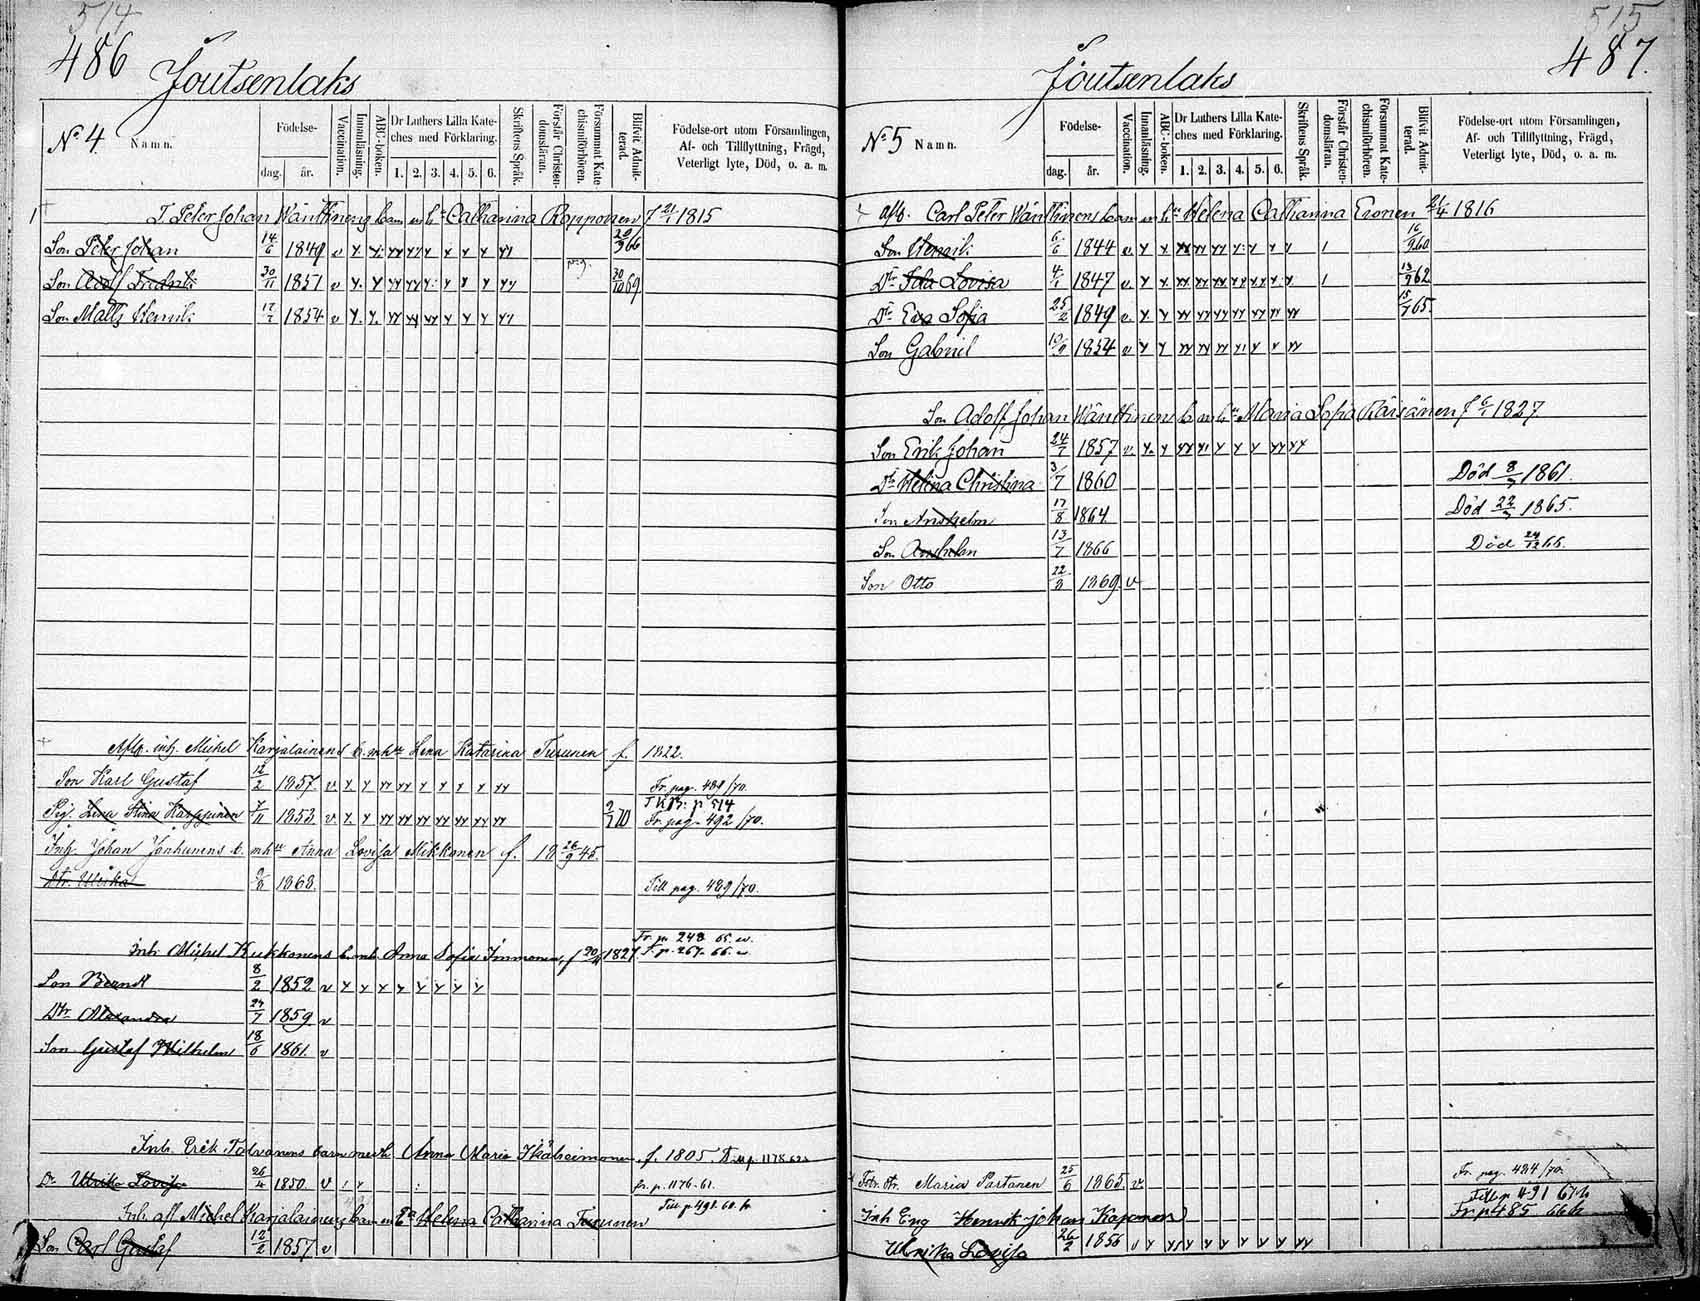 514
486 Joutsenlaks
No 4. Namn.
Födelse-
dag. år.
Vaccination.
Innanläsning.
ABC-boken.
Dr Luthers Lilla Kate-
ches med Förklaring.
1. 2. 3. 4. 5. 6.
Skriftens Språk.
Förstår Christen-
domsläran.
Försummat Kate
chismiförhören.
Blifvit Admit-
terad.
Födelse-ort utom Församlingen,
Af- och Tillflyttning, Frägd,
Veterligt lyte, Död, o. a. m.
T. Peter Johan Wänttinens barn m h:u Catharina Ropponen f 21/1 1815
Son Peter Johan 14/6 1849 v 20/9 66
Son Adolf Fredrik 30/11 1851 v 30/10 69
Son Matts Henrik 17/7 1854 v
Afl. inh. Mickel Karjalainens b. m h:u Lena Katarina Turunen f. 1822.
Son Karl Gustaf 12/2 1857 v Fr. pag. 484/70.
T KB: p 514
Pig. Lena Stina Karppinen 7/11 1853 v 2/7 70 Fr. pag. 492/70.
Inh. Johan Jonhunens b. m h:u Anna Lovisa Mikkonen f. 18 26/9 45.
Dtr. Ulrika 1868. Till pag. 489/70.
Fr. p. 248 65.
Inh. Michel Kukkonens b. m h. Anna Sofia Immonen, f 20 1827 F. p. 267. 66.
Son Berndt 8/2 1852 v
Dtr Alexandra 24/7 1859 v
Son Gustaf Wilhelm 18/6 1861. v
Inh. Erik Tolvanens barn med h. Anna Maria Ikäheimonen f. 1805. p. 1178.62.
Dr Ulrika Lovisa 26/4 1850. v fr. p. 1176-61.
Till p 491. 60.
Inh. afl Michel Karjalainens barn m Helena Catharina Turunen
Son Carl Gustaf 12/2 1857 v
515
487.
Joutsenlaks
No 5 Namn.
Födelse-
dag. år.
Vaccination.
Innanläsning.
ABC-boken.
Dr Luthers Lilla Kate-
ches med Förklaring.
1. 2. 3. 4. 5. 6.
Skriftens Språk.
Förstår Christen-
domsläran.
Försummat Kate-
chismiförhören.
Blifvit Admit-
terad.
Födelse-ort utom Församlingen,
Af- och Tillflyttning, Frägd,
Veterligt lyte, Död, o. a. m.
afl. Carl Peter Wänttinens barn m h:u Helena Catharina Eronen 21/4 1816
Son Henrik 6/6 1844 v 16/9 60
Dtr Ida Lovisa 4/1 1847 v 13/9 62
Dtr Eva Sofia 25/2 1849 v 15/7 65.
Son Gabriel 10/9 1854 v
Son Adolf Johan Wänttinens b m h:u Maria Sofia Kärsänen f 6/1 1827
Son Erik Johan 24/7 1857 v
Dtr Helena Christina 3/7 1860 Död 8/7 1861.
Son Anshelm 17/8 1864. Död 22/3 1865.
Son Anshelm 13/7 1866 Död 24/12 66.
Son Otto 22/3 1869. v
Fotr. dtr. Maria Partanen 25/6 1865. v Fr. pag. 484/70.
Till p 491 67
Inh Eng Henrik Johan Kaponen Fr p 485 66
Ulrika Lovisa 26/2 1856 v